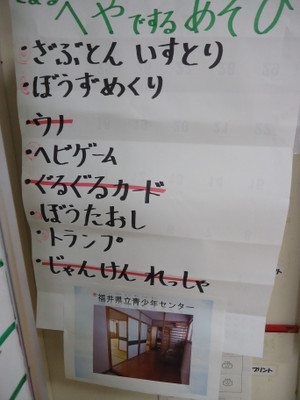 へやでするあそび
ざぶとん いすとり
ぼうずめくり
ウナ
ヘビゲーム
ぐるぐるカード
ぼうたおし
トランプ
じゃんけん れっしゃ
福井県立青少年センター
プリント